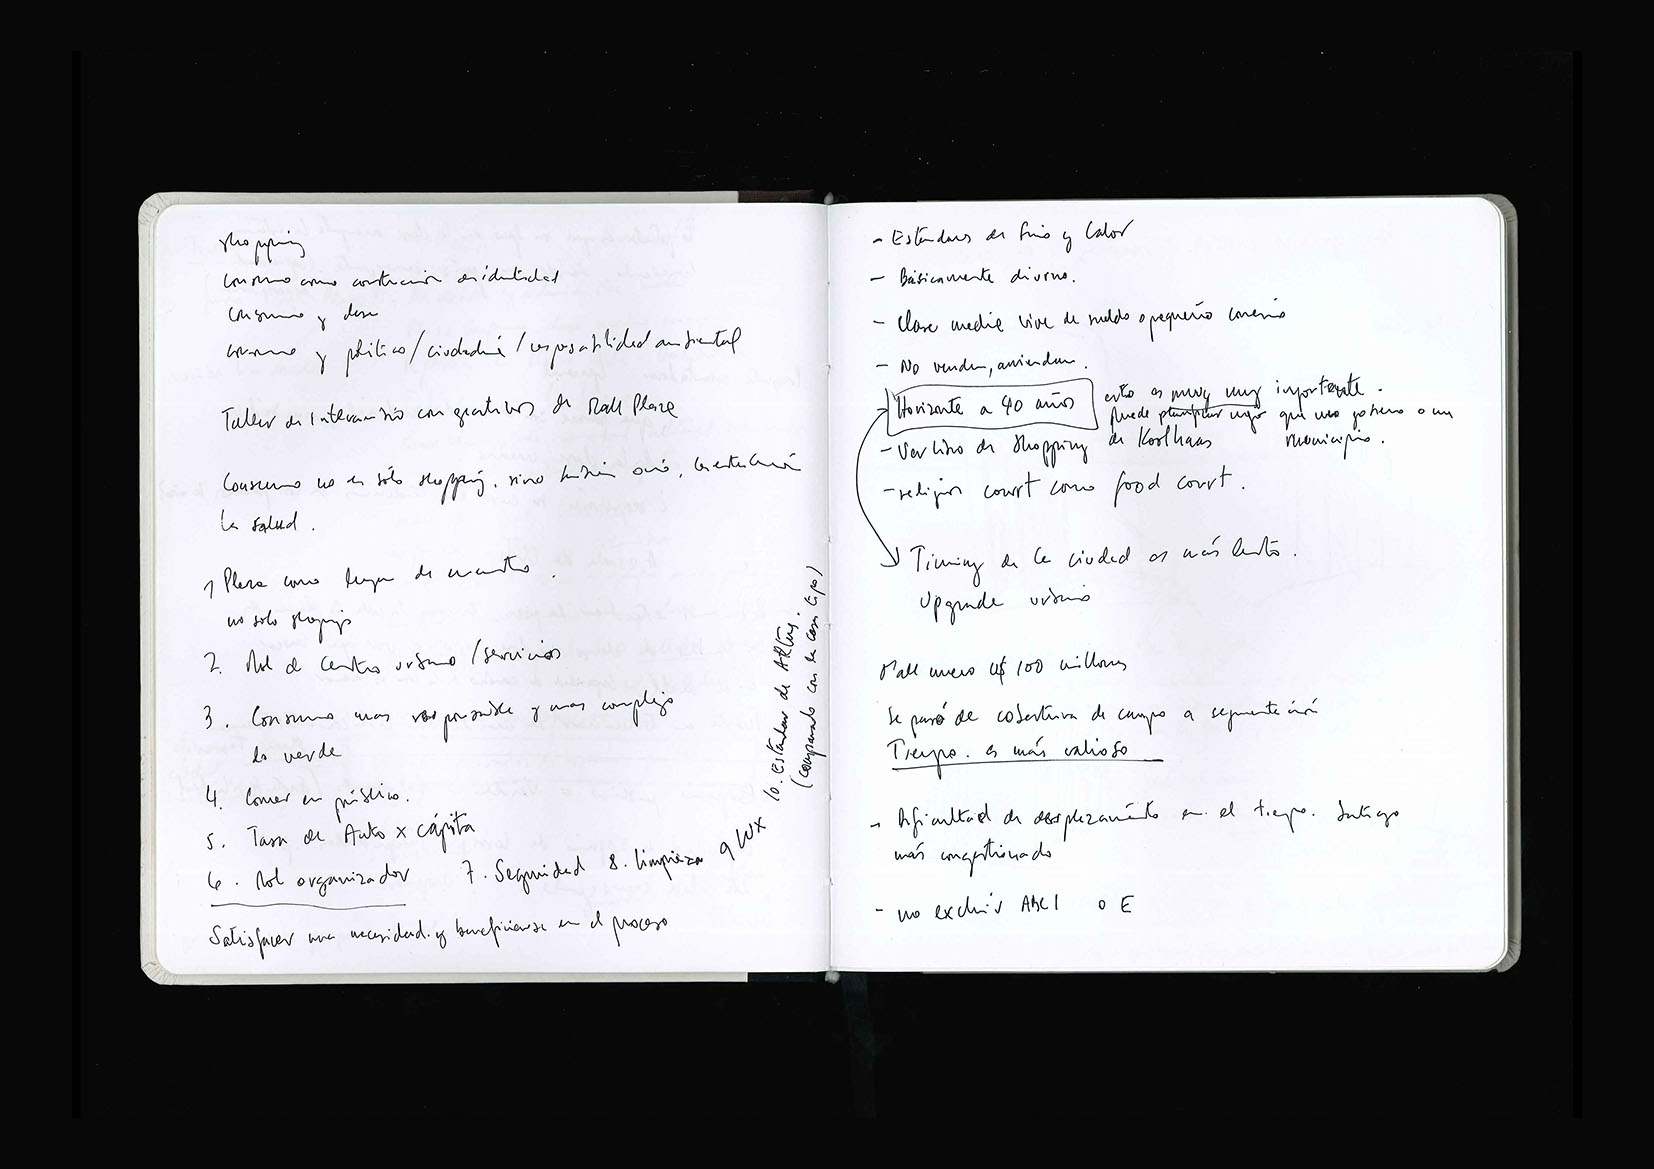 shopping
consumo como construcción de identidad
consumo y clase
consumo y política/ciudadanía/responsabilidad ambiental
Taller de Intercambio con gerentes de Mall Plaza
Consumo no es sólo shopping, sino también ocio,
la salud.
1 Plaza como lugar de encuentro.
no solo shopping
2. Rol de centro urbano/servicios
3. Consumo mas responsable y mas complejo
lo verde
4. Comer en público.
5. Tasa de Auto x cápita
6. Rol organizador 7. Seguridad 8. limpieza 9 lux
10. Estándar de Arting.
(comparado con la casa tipo)
Satisfacer una necesidad y beneficiarse en el proceso
- Estándares de frío y calor
- Básicamente diurno.
- Clase media vive de sueldo o pequeño comercio
- No venden, arriendan.
Horizonte a 40 años esto es muy muy importante.
Puede planificar mejor que un gobierno o un
municipio.
- Ver libro de shopping de Koolhaas
- religious court como food court.
Timing de la ciudad es más lento.
Upgrade urbano
Mall nuevo U$ 100 millones
Se pasó de cobertura de campo a segmentación
Tiempo. es más valioso
- Dificultad de desplazamiento en el tiempo. Santiago
más congestionado
- no excluir ABC1 o E